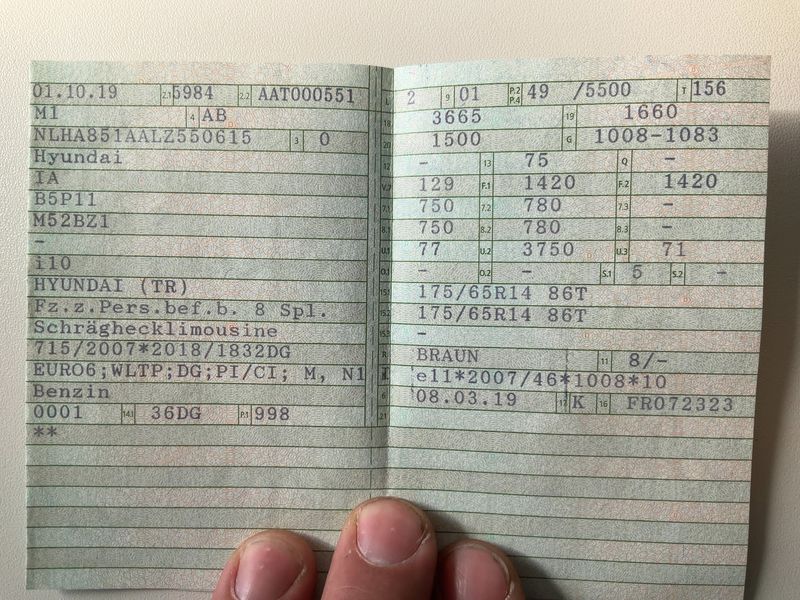 01.10.19 2.1 5984 2.2 AAT000551
M1 4 AB
NLHA851AALZ550615 3 0
Hyundai
IA
B5P11
M52BZ1
-
i10
HYUNDAI (TR)
Fz.z.Pers.bef.b. 8 Spl.
Schräghecklimousine
715/2007*2018/1832DG
EURO6;WLTP;DG;PI/CI; M, N1 I
Benzin
0001 14.1 36DG P.1 998
**
L 2 9 01 P.2 P.4 49 /5500 T 156
18 3665 19 1660
20 1500 G 1008-1083
12 - 13 75 Q -
V.7 129 F.1 1420 F.2 1420
7.1 750 7.2 780 7.3 -
8.1 750 8.2 780 8.3 -
U.1 77 U.2 3750 U.3 71
O.1 - O.2 - S.1 5 S.2 -
15.1 175/65R14 86T
15.2 175/65R14 86T
15.3 -
R BRAUN 11 8/-
K e11*2007/46*1008*10
6 08.03.19 17 K 16 FR072323
21